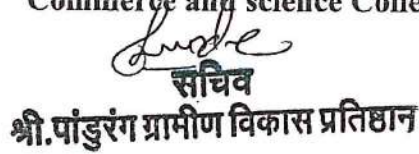 Commerce and science Colle
सचिव
श्री.पांडुरंग ग्रामीण विकास प्रतिष्ठान